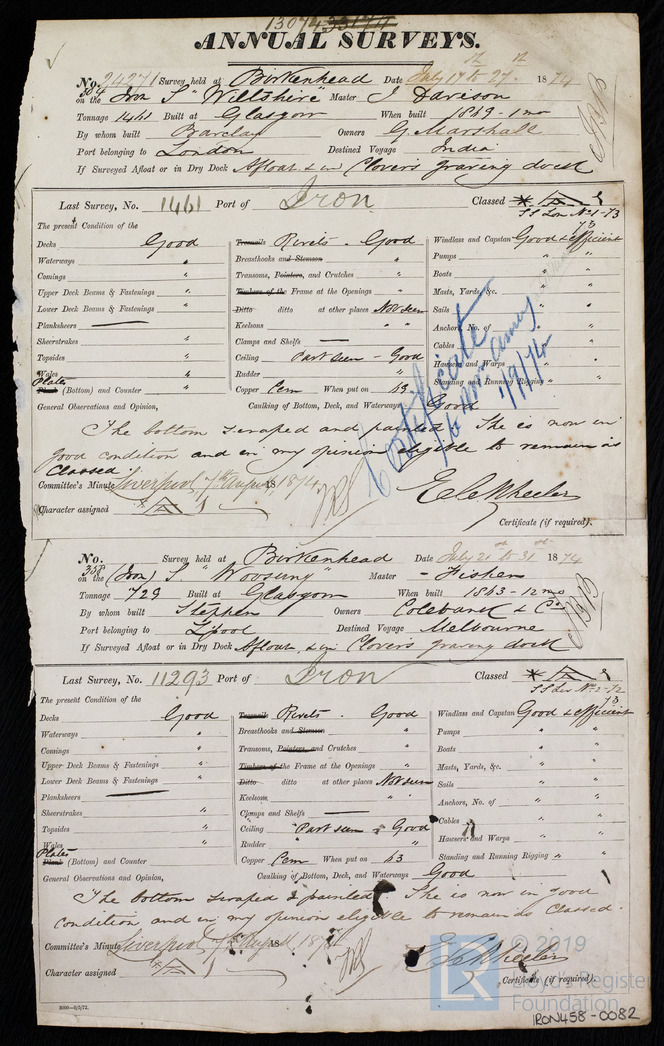 13074
ANNUAL SURVEYS.
No. 24271 Survey held at Birkenhead Date July 17th to 27th 1874
on the Iron S "Willshire" Master J Davison
Tonnage 1461 Built at Glasgow When built 1869 - 1 mo
By whom built Barclay Owners G. Marshall
Port belonging to London Destined Voyage India
If Surveyed Afloat or in Dry Dock Afloat & in Clover's graving dock
Last Survey, No. 1461 Port of Iron Classed A
SS Lon No 1-73
The present Condition of the
Decks Good Treenails Rivets . Good Windlass and Capstan Good & efficient
Waterways " Breasthooks and Stemson " Pumps " "
Comings " Transoms, Pointers, and Crutches " Boats " "
Upper Deck Beams & Fastenings " Timbers of the Frame at the Openings " Masts, Yards, &c. " "
Lower Deck Beams & Fastenings " Ditto ditto at other places Not seen Sails " "
Planksheers Keelsons " " Anchors, No. of "
Sheerstrakes " Clamps and Shelfs Cables
Topsides " Ceiling Part seen - Good Hawsers and Warps "
Wales " Rudder " Standing and Running Rigging "
Plates
Plank (Bottom) and Counter " Copper Cem When put on 63
General Observations and Opinion, Caulking of Bottom, Deck, and Waterways Good
Certificate
1/9/74
The bottom scraped and painted. She is now in
good condition and in my opinion eligible to remain as
Classed.
Committee's Minute Liverpool 7th August 1874
E C Wheeler
Character assigned A 1
Certificate (if required).
No. 358 Survey held at Birkenhead Date July 21st to 31st 1874
on the (Iron) S "Woosung" Master - Fisher
Tonnage 729 Built at Glasgow When built 1863 - 12 mo
By whom built Stephen Owners Colebank & Co
Port belonging to L'pool Destined Voyage Melbourne
If Surveyed Afloat or in Dry Dock Afloat, & in Clover's graving dock
Last Survey, No. 11293 Port of Iron Classed A
The present Condition of the
Decks Good Treenails Rivets . Good Windlass and Capstan Good & efficient
Waterways " Breasthooks and Stemson " Pumps " "
Comings " Transoms, Pointers, and Crutches " Boats " "
Upper Deck Beams & Fastenings " Timbers of the Frame at the Openings " Masts, Yards, &c. " "
Lower Deck Beams & Fastenings " Ditto ditto at other places Not seen Sails " "
Planksheers Keelsons " Anchors, No. of " "
Sheerstrakes " Clamps and Shelfs Cables " "
Topsides " Ceiling Part seen & Good Hawsers and Warps " "
Wales " Rudder " Standing and Running Rigging " "
Plates
Plank (Bottom) and Counter " Copper Cem When put on 63
General Observations and Opinion, Caulking of Bottom, Deck, and Waterways Good
The bottom scraped & painted. She is now in good
condition, and in my opinion eligible to remain as Classed.
Committee's Minute Liverpool 7th August 1874
E C Wheeler
Character assigned A 1
Certificate (if required).
© 2019
Lloyd's Register
Foundation
LR
IRON458-0082